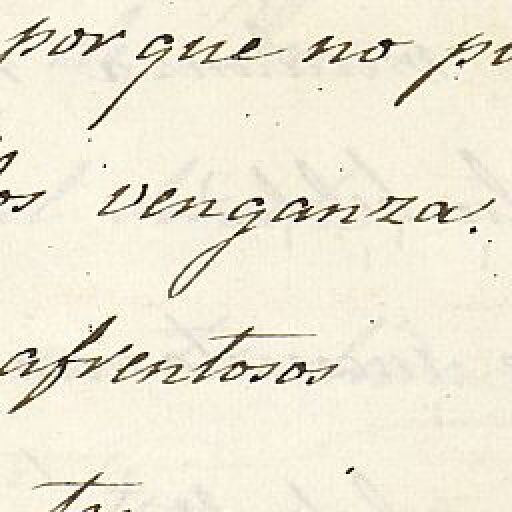 por que no
venganza.
afrentosos